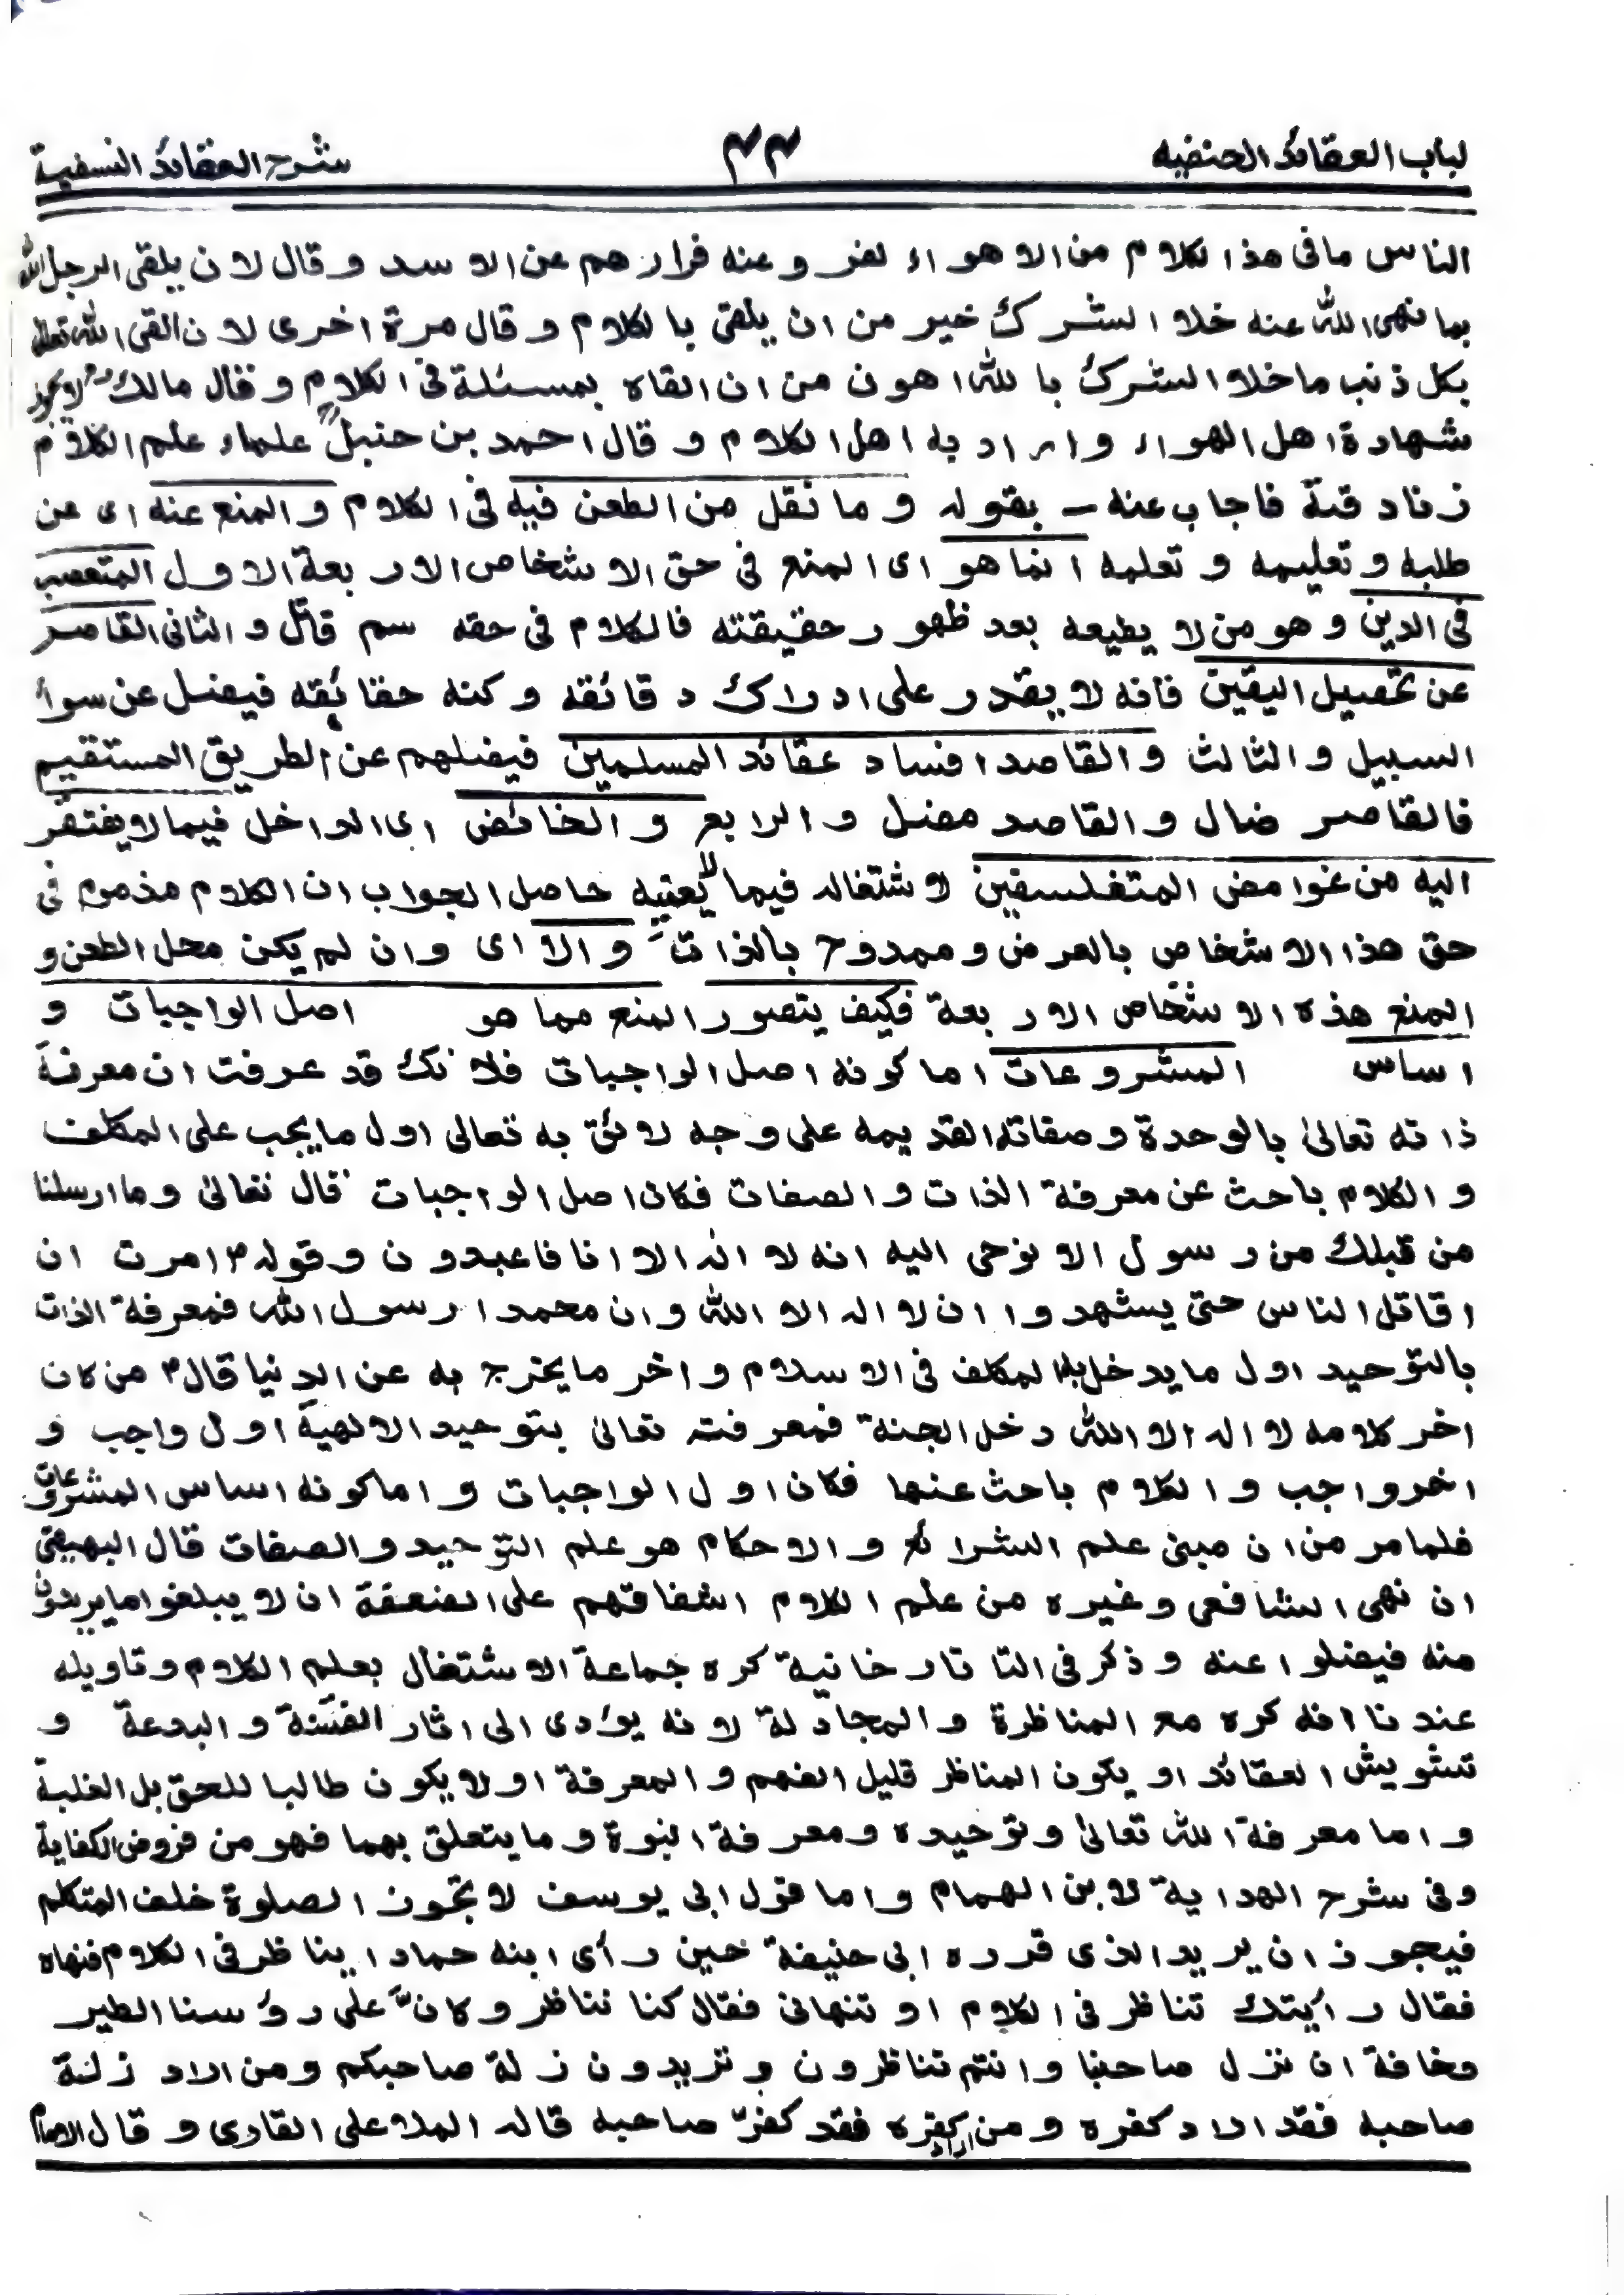 لباب العقائد الحنفيه ٤٤ شرح العقائد النسفية
الناس ما فى هذا لكلام من الاهواء لفروعنه فرارهم عن الاسد وقال لان يلقى الرجل الله
بما نهى الله عنه خلا الشرك خير من ان يلقى با لكلام وقال مرة اخرى لان القى الله تعالى
بكل ذنب ما خلا الشرك با لله اهون من ان القاه بمسئلة فى الكلام وقال مالك لا يجوز
شهادة اهل الهواء واراد به اهل الكلام وقال احمد بن حنبل علماء علم الكلام
زنادقة فاجاب عنه ــ بقوله وما نقل من الطعن فيه فى الكلام والمنع عنه اى عن
طلبه وتعليمه وتعلمه انما هو اى المنع فى حق الاشخاص الاربعة الاول المتعصب
فى الدين وهو من لا يطيعه بعد ظهور حقيقته فالكلام فى حقه سم قاتل والثانى القاصر
عن تحصيل اليقين فانه لا يقدر على ادراك دقائقه وكنه حقائقه فيضل عن سواء
السبيل والثالث والقاصد افساد عقائد المسلمين فيضلهم عن الطريق المستقيم
فالقاصر ضال والقاصد مضل والرابع والخائض اى الداخل فيما لا يفتقر
اليه من غوامض المتفلسفين لاشتغاله فيما لا يعنيه حاصل الجواب ان الكلام مذموم فى
حق هذا الاشخاص بالعرض وممدوح بالذات والا اى وان لم يكن محل الطعن و
المنع هذه الاشخاص الاربعة فكيف يتصور المنع مما هو اصل الواجبات و
اساس المشروعات اما كونه اصل الواجبات فلانك قد عرفت ان معرفة
ذاته تعالىٰ بالوحدة وصفاته القديمه على وجه لائق به تعالى اول ما يجب على المكلف
والكلام باحث عن معرفة الذات والصفات فكان اصل الواجبات قال تعالىٰ وما ارسلنا
من قبلك من رسول الا نوحى اليه انه لا اله الا انا فاعبدون وقوله ؐ امرت ان
اقاتل الناس حتى يشهدوا ان لا اله الا الله وان محمدا رسول الله فمعرفة الذات
بالتوحيد اول ما يدخل به المكلف فى الاسلام واخر ما يخرج به عن الدنيا قال ؐ من كان
اخر كلامه لا اله الا الله دخل الجنة فمعرفته تعالىٰ بتوحيد الالهية اول واجب و
اخر واجب والكلام باحث عنها فكان اول الواجبات واما كونه اساس المشروعات
فلما مر من ان مبنى علم الشرائع والاحكام هو علم التوحيد والصفات قال البهيقى
ان نهى الشافعى وغيره من علم الكلام اشفاقهم على الضعفة ان لا يبلغوا ما يريدون
منه فيضلوا عنه وذكر فى التاتارخانية كره جماعة الاشتغال بعلم الكلام وتاويله
عندنا انه كره مع المناظرة والمجادلة لانه يؤدى الى اثار الفتنة والبدعة و
تشويش العقائد او يكون المناظر قليل الفهم والمعرفة او لا يكون طالبا للحق بل الغلبة
واما معرفة الله تعالىٰ وتوحيده ومعرفة النبوة وما يتعلق بهما فهو من فروض الكفاية
وفى شرح الهداية لابن الهمام واما قول ابى يوسف لا تجوز الصلوة خلف المتكلم
فيجوز ان يريد الذى قرره ابى حنيفة حين رأى ابنه حمادا يناظر فى الكلام فنهاه
فقال رأيتك تناظر فى الكلام او تنهانى فقال كنا نناظر وكانّ على رؤسنا الطير
مخافة ان نزل صاحبنا وانتم تناظرون وتريدون زلة صاحبكم ومن اراد زلة
صاحبه فقد اراد كفره ومن اراد كفره فقد كفر صاحبه قاله الملا على القارى وقال الامام